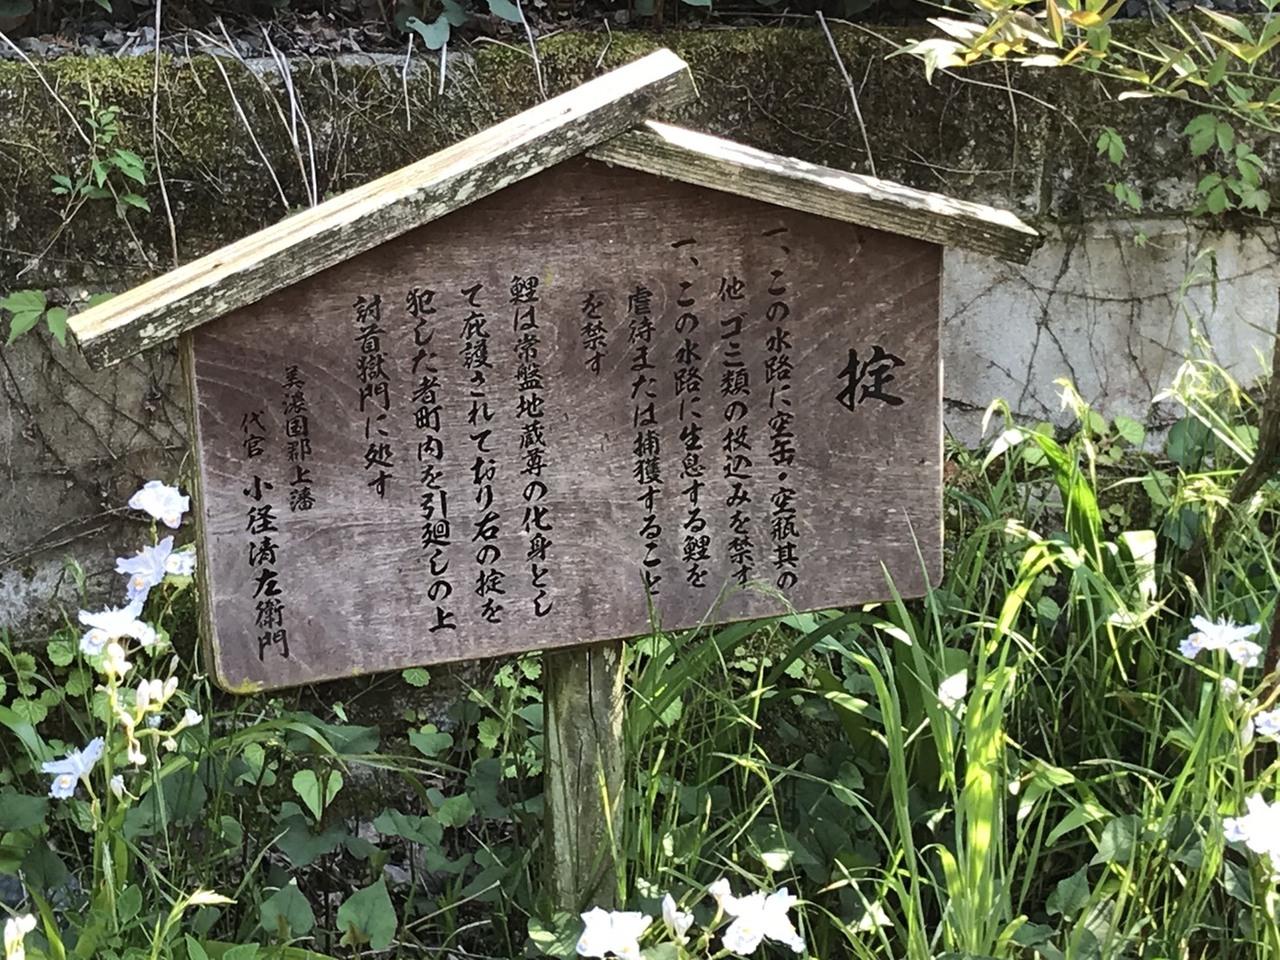 掟
一、この水路に空缶・空瓶其の
他ゴミ類の投込みを禁す
一、この水路に生息する鯉を
虐待または捕獲すること
を禁す
鯉は常盤地蔵尊の化身とし
て庇護されており右の掟を
犯した者町内を引廻しの上
討首獄門に処す
美濃国郡上藩
代官 小径清左衛門